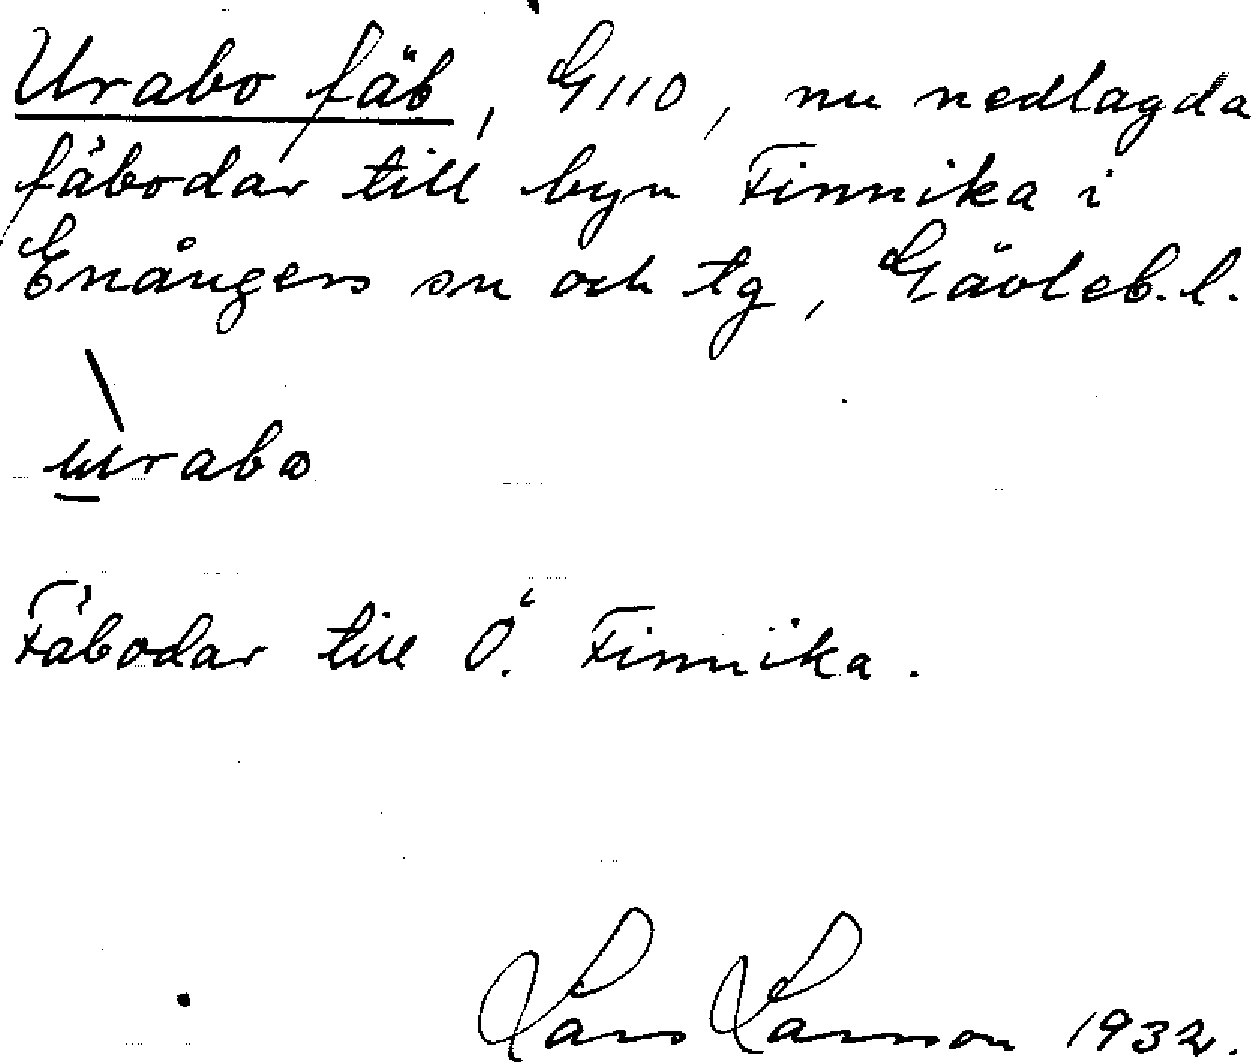 Urabo fäb, G110, nu nedlagda
fäbodar till byn Finnika i
Enångers sn och tg, Gävleb. l.
ùrabo
Fäbodar till Ö. Finnika.
Lars Larsson 1932.